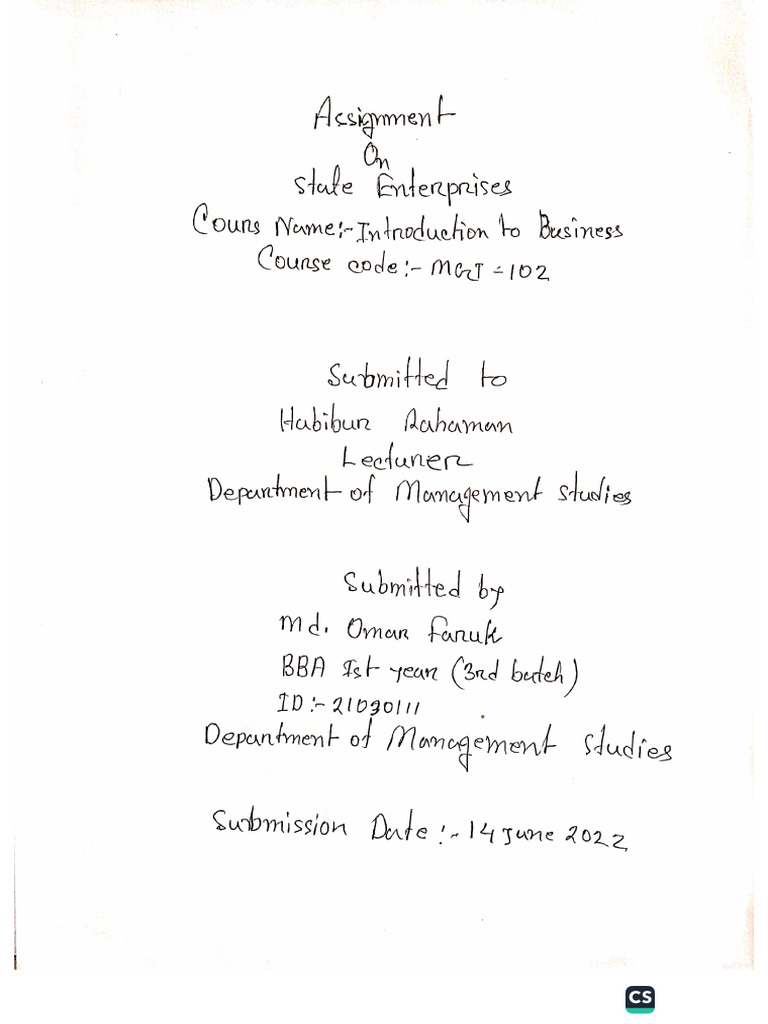 Assignment
On
State Enterprises
Cours Name:- Introduction to Business
Course code:- MGT-102
Submitted to
Habibur Rahaman
Lecturer
Department of Management studies
Submitted by
Md. Omar faruk
BBA 1st year (3rd batch)
ID:- 21030111
Department of Management studies
Submission Date:- 14 June 2022
CS